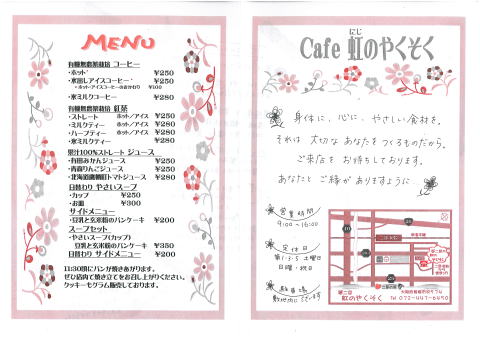 MENU
有機無農薬栽培 コーヒー
・ホット ¥250
・水出しアイスコーヒー ¥250
・ホット・アイスコーヒーのおかわり ¥100
・氷ミルクコーヒー ¥280
有機無農薬栽培 紅茶
・ストレート ホット/アイス ¥250
・ミルクティー ホット/アイス ¥280
・ハーブティー ホット/アイス ¥280
・氷ミルクティー ¥280
果汁100%ストレート ジュース
・有田みかんジュース ¥250
・青森りんごジュース ¥250
・北海道鷹栖町トマトジュース ¥280
日替わり やさいスープ
・カップ ¥250
・お皿 ¥300
サイドメニュー
・豆乳と玄米粉のパンケーキ ¥200
スープセット
・やさいスープ(カップ)
豆乳と玄米粉のパンケーキ ¥350
日替わり サイドメニュー ¥200
11:30頃にパンが焼きあがります。
ぜひ店内で焼き立てをお召し上がりください。
クッキーもグラム販売しております。
にじ
Cafe 虹のやくそく
身体に、心に、やさしい食材を。
それは 大切な あなたを つくるものだから。
ご来店を お待ちしております。
あなたと ご縁が ありますように
営業時間
9:00〜16:00
定休日
第1・3・5 土曜日
日曜・祝日
駐車場
敷地内にございます
虹のやくそく
TEL 072-447-6490